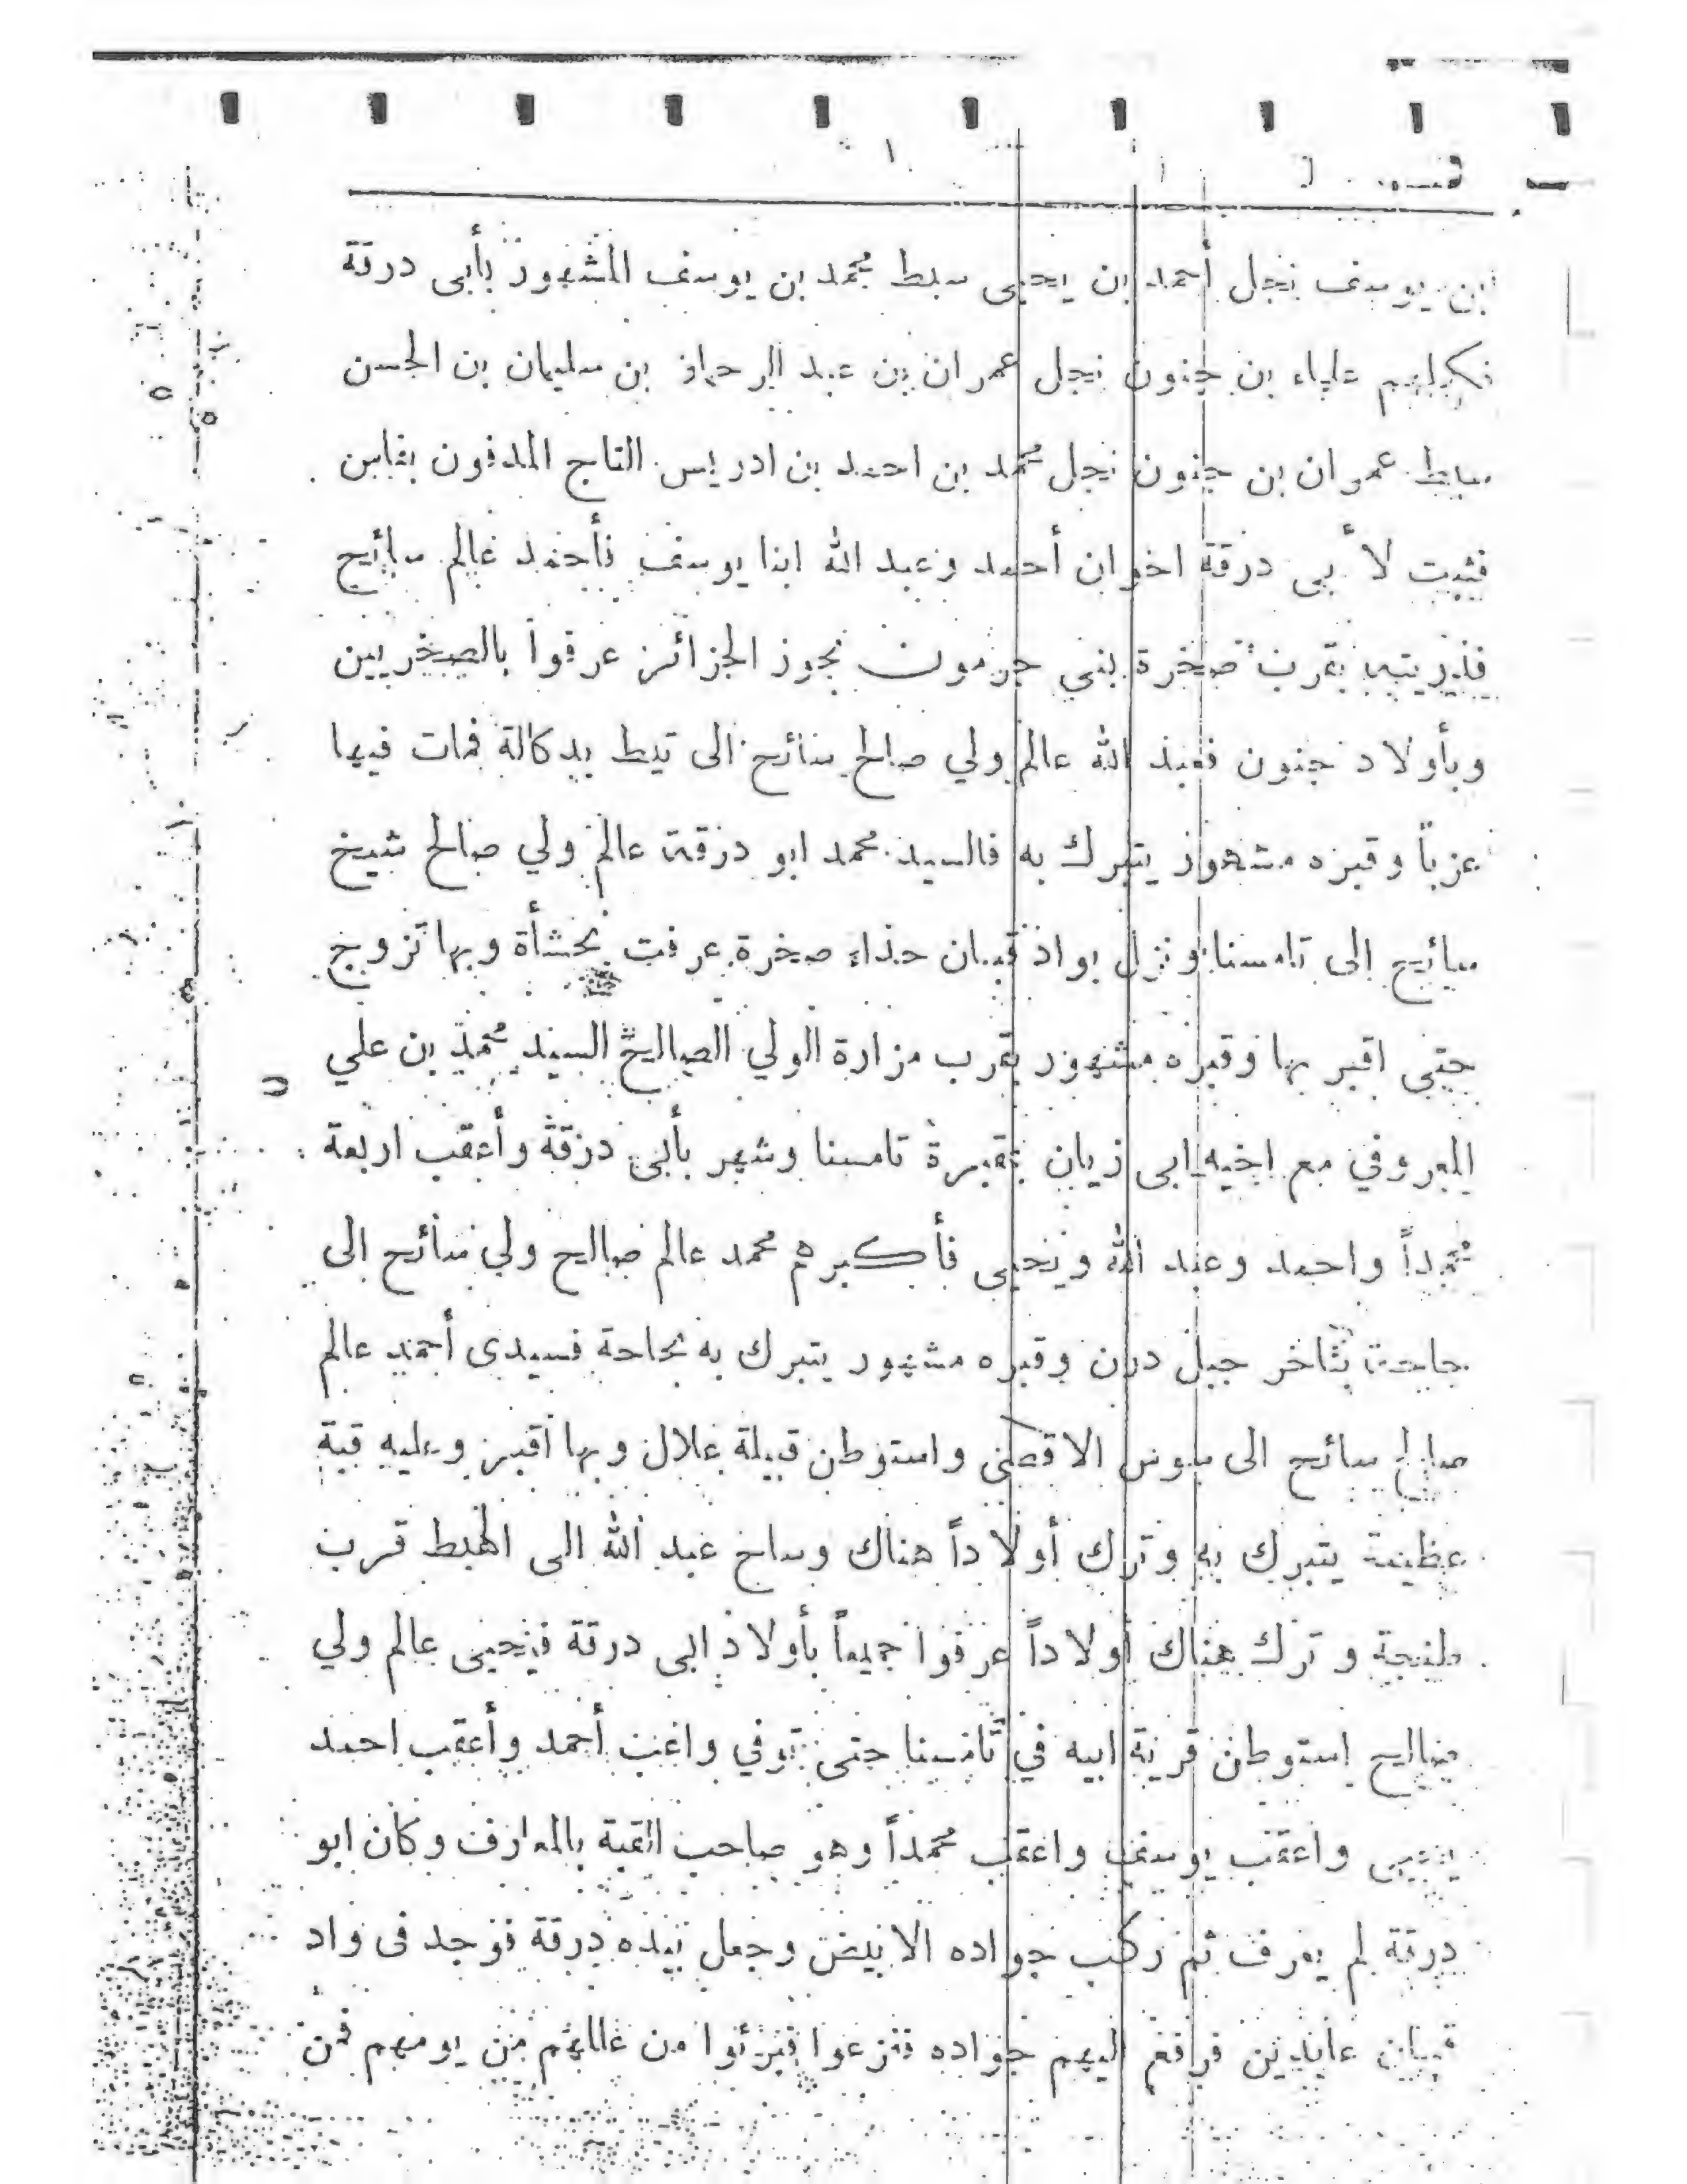 بن يوسف نجل أحمد بن يحيى سبط محمد بن يوسف المشهور بأبى درقة
فكلهم علماء بن جنون نجل عمران بن عبد الرحمان بن سليمان بن الحسن
سبط عمران بن جنون نجل محمد بن احمد بن ادريس التاج المدفون بفاس
فثبت لأبى درقة اخوان أحمد وعبد الله ابنا يوسف فأحمد عالم سائح
فذريته بقرب صخرة بنى جرمون بحوز الجزائر عرفوا بالصخريين
وبأولاد جنون فعبد الله عالم ولي صالح سائح الى تيط بدكالة فمات فيها
عزباً وقبره مشهور يتبرك به فالسيد محمد ابو درقة عالم ولي صالح شيخ
سائح إلى تامسنا ونزل بواد قيسان حذاء صخرة عرفت بخشأة وبها تزوج
حتى اقبر بها وقبره مشهور بقرب مزارة الولي الصالح السيد محمد بن علي
المعروفي مع اخيه ابى زيان بمقبرة تامسنا وشهر بأبى درقة وأعقب اربعة
محمداً واحمد وعبد الله ويحيى فأكبرهم محمد عالم صالح ولي سائح إلى
حاحة بتاخر جبل درن وقبره مشهور يتبرك به بحاحة فسيدى أحمد عالم
صالح سائح الى سوس الاقصى واستوطن قبيلة علال وبها اقبر وعليه قبة
عظيمة يتبرك به وترك أولاداً هناك وساح عبد الله الى الهبط قرب
طنجة وترك هناك أولاداً عرفوا جميعاً بأولاد ابى درقة فيحيى عالم ولي
صالح إستوطن قرية ابيه في تامسنا حتى توفي وأعقب أحمد وأعقب احمد
يحيى واعقب يوسف واعقب محمداً وهو صاحب القبة بالمعارف وكان ابو
درقة لم يعرف ثم ركب جواده الابيض وجعل بيده درقة فوجد فى واد
عابدين فرافع اليهم جواده ففزعوا فبرئوا من عللهم من يومهم فمن